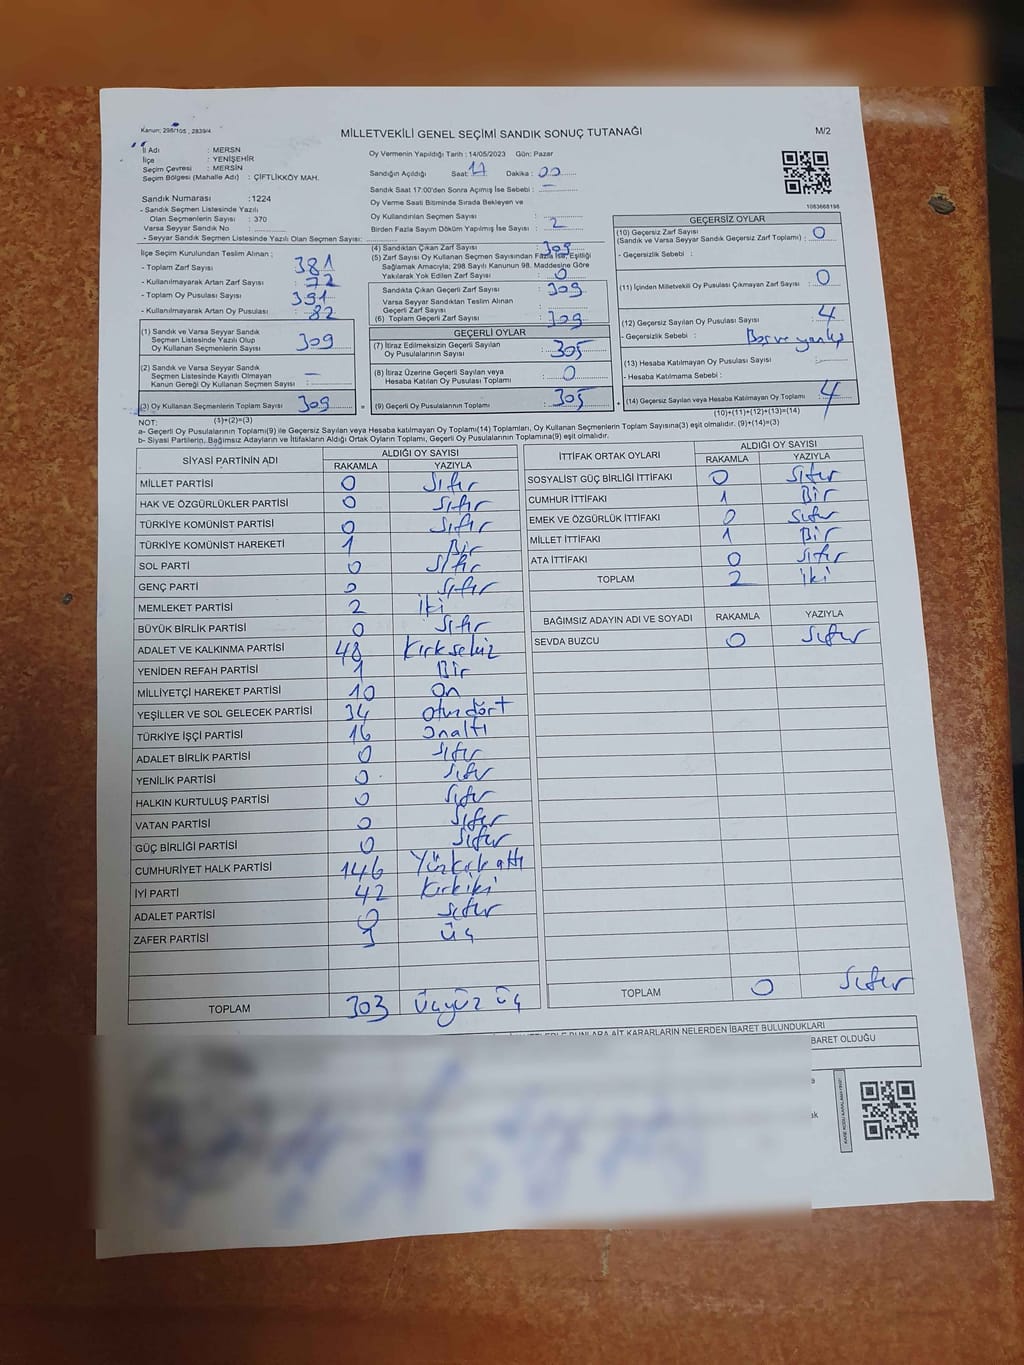 Kanun; 298/105 , 2839/4
MİLLETVEKİLİ GENEL SEÇİMİ SANDIK SONUÇ TUTANAĞI
M/2
İl Adı : MERSN
İlçe : YENİŞEHİR
Seçim Çevresi : MERSİN
Seçim Bölgesi (Mahalle Adı) : ÇİFTLİKKÖY MAH.
Oy Vermenin Yapıldığı Tarih : 14/05/2023 Gün: Pazar
Sandığın Açıldığı Saat: 17 Dakika : 00
Sandık Saat 17:00'den Sonra Açımış İse Sebebi : —
Oy Verme Saati Bitiminde Sırada Bekleyen ve
Oy Kullandırılan Seçmen Sayısı :
Birden Fazla Sayım Döküm Yapılmış İse Sayısı : 2
1083668198
Sandık Numarası :1224
- Sandık Seçmen Listesinde Yazılı
Olan Seçmenlerin Sayısı : 370
Varsa Seyyar Sandık No :
- Seyyar Sandık Seçmen Listesinde Yazılı Olan Seçmen Sayısı:
İlçe Seçim Kurulundan Teslim Alınan ;
- Toplam Zarf Sayısı : 381
- Kullanılmayarak Artan Zarf Sayısı : 72
- Toplam Oy Pusulası Sayısı : 391
- Kullanılmayarak Artan Oy Pusulası : 82
(1) Sandık ve Varsa Seyyar Sandık
Seçmen Listesinde Yazılı Olup
Oy Kullanan Seçmenlerin Sayısı : 309
(2) Sandık ve Varsa Seyyar Sandık
Seçmen Listesinde Kayıtlı Olmayan
Kanun Gereği Oy Kullanan Seçmen Sayısı : —
(3) Oy Kullanan Seçmenlerin Toplam Sayısı : 309
(4) Sandıktan Çıkan Zarf Sayısı : 309
(5) Zarf Sayısı Oy Kullanan Seçmen Sayısından Fazla İse, Eşitliği
Sağlamak Amacıyla; 298 Sayılı Kanunun 98. Maddesine Göre
Yakılarak Yok Edilen Zarf Sayısı : 0
Sandıkta Çıkan Geçerli Zarf Sayısı : 309
Varsa Seyyar Sandıktan Teslim Alınan
Geçerli Zarf Sayısı :
(6) Toplam Geçerli Zarf Sayısı : 309
GEÇERLİ OYLAR
(7) İtiraz Edilmeksizin Geçerli Sayılan
Oy Pusulalarının Sayısı : 305
(8) İtiraz Üzerine Geçerli Sayılan veya
Hesaba Katılan Oy Pusulası Toplamı : 0
= (9) Geçerli Oy Pusulalarının Toplamı : 305
GEÇERSİZ OYLAR
(10) Geçersiz Zarf Sayısı
(Sandık ve Varsa Seyyar Sandık Geçersiz Zarf Toplamı) : 0
- Geçersizlik Sebebi :
(11) İçinden Milletvekili Oy Pusulası Çıkmayan Zarf Sayısı : 0
(12) Geçersiz Sayılan Oy Pusulası Sayısı : 4
- Geçersizlik Sebebi : Boş ve yanlış
(13) Hesaba Katılmayan Oy Pusulası Sayısı :
- Hesaba Katılmama Sebebi :
+ (14) Geçersiz Sayılan veya Hesaba Katılmayan Oy Toplamı : 4
(10)+(11)+(12)+(13)=(14)
NOT: (1)+(2)=(3)
a- Geçerli Oy Pusulalarının Toplamı(9) ile Geçersiz Sayılan veya Hesaba katılmayan Oy Toplamı(14) Toplamları, Oy Kullanan Seçmenlerin Toplam Sayısına(3) eşit olmalıdır. (9)+(14)=(3)
b- Siyasi Partilerin, Bağımsız Adayların ve İttifakların Aldığı Ortak Oyların Toplamı, Geçerli Oy Pusulalarının Toplamına(9) eşit olmalıdır.
SİYASİ PARTİNİN ADI ALDIĞI OY SAYISI
RAKAMLA YAZIYLA
MİLLET PARTİSİ 0 Sıfır
HAK VE ÖZGÜRLÜKLER PARTİSİ 0 Sıfır
TÜRKİYE KOMÜNİST PARTİSİ 0 Sıfır
TÜRKİYE KOMÜNİST HAREKETİ 1 Bir
SOL PARTİ 0 Sıfır
GENÇ PARTİ 0 Sıfır
MEMLEKET PARTİSİ 2 İki
BÜYÜK BİRLİK PARTİSİ 0 Sıfır
ADALET VE KALKINMA PARTİSİ 48 Kırksekiz
YENİDEN REFAH PARTİSİ 1 Bir
MİLLİYETÇİ HAREKET PARTİSİ 10 On
YEŞİLLER VE SOL GELECEK PARTİSİ 34 Otuzdört
TÜRKİYE İŞÇİ PARTİSİ 16 Onaltı
ADALET BİRLİK PARTİSİ 0 Sıfır
YENİLİK PARTİSİ 0 Sıfır
HALKIN KURTULUŞ PARTİSİ 0 Sıfır
VATAN PARTİSİ 0 Sıfır
GÜÇ BİRLİĞİ PARTİSİ 0 Sıfır
CUMHURİYET HALK PARTİSİ 146 Yüzkırkaltı
İYİ PARTİ 42 Kırkiki
ADALET PARTİSİ 0 Sıfır
ZAFER PARTİSİ 3 Üç
TOPLAM 303 Üçyüz üç
İTTİFAK ORTAK OYLARI ALDIĞI OY SAYISI
RAKAMLA YAZIYLA
SOSYALİST GÜÇ BİRLİĞİ İTTİFAKI 0 Sıfır
CUMHUR İTTİFAKI 1 Bir
EMEK VE ÖZGÜRLÜK İTTİFAKI 0 Sıfır
MİLLET İTTİFAKI 1 Bir
ATA İTTİFAKI 0 Sıfır
TOPLAM 2 İki
BAĞIMSIZ ADAYIN ADI VE SOYADI RAKAMLA YAZIYLA
SEVDA BUZCU 0 Sıfır
TOPLAM 0 Sıfır
BUNLARA AİT KARARLARIN NELERDEN İBARET BULUNDUKLARI
BARET OLDUĞU